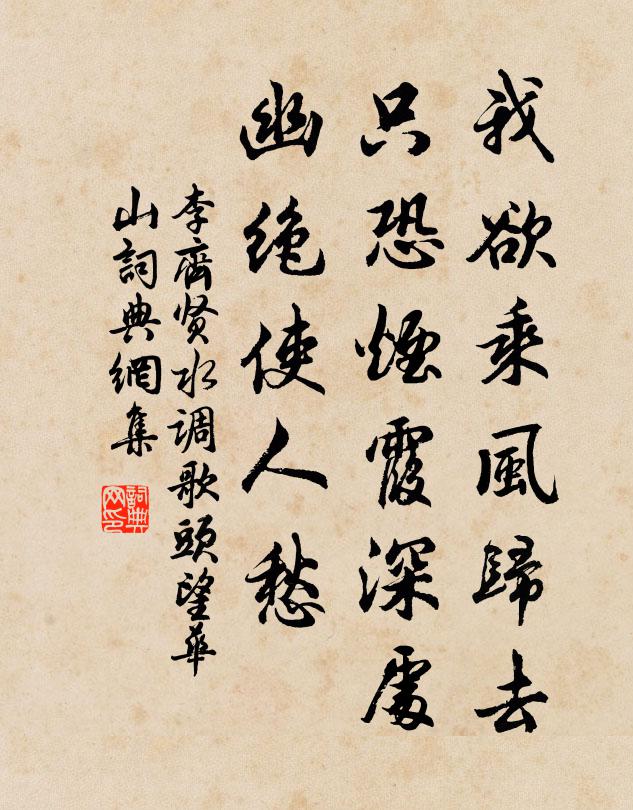 我欲乘風歸去
只恐煙霞深處
幽絶使人愁
李齊贤水调歌頭望華
山詞典網集
詞典网印